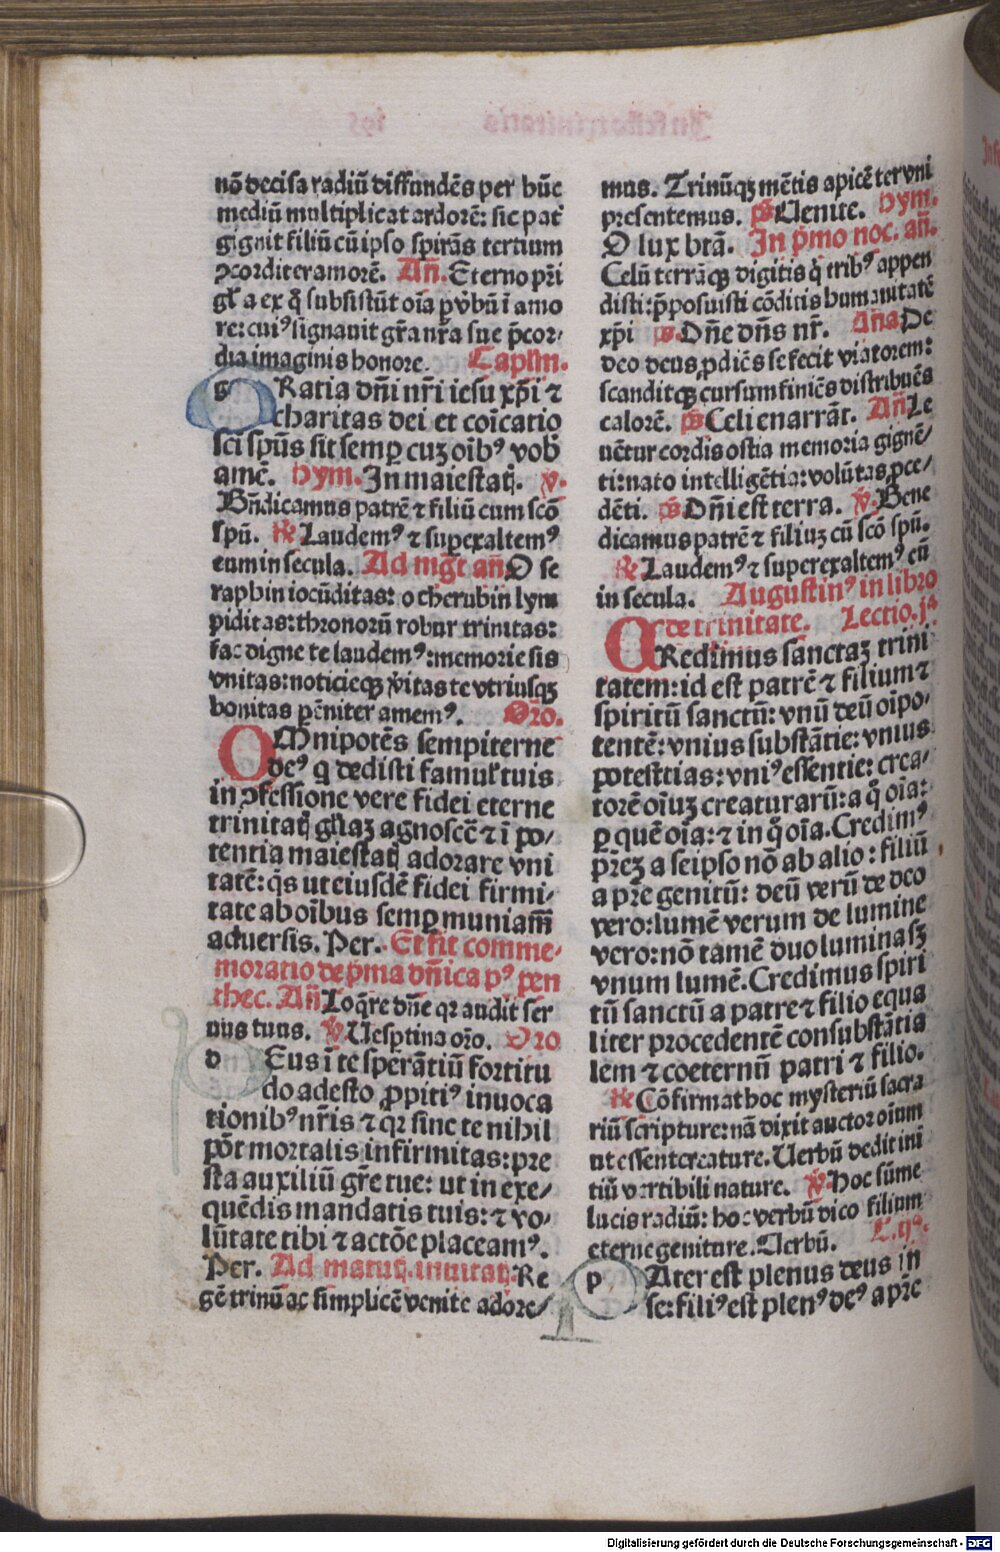 nõ decisa radiũ diffundẽs per hũc
mediũ multiplicat ardorẽ: sic pat᷑
gignit filiũ cũ ipso spirãs tertium
ꝯcorditer amorẽ. Añ. Eterno pr̃i
gl̃a ex q̊ subsistũt oĩa ꝑ v̾bũ ĩ amo
re: cuiꝰ signauit gr̃a nr̃a sue p̃cor⸗
dia imaginis honore. Capl̃m.
gRatia dñi nr̃i iesu xp̃i ⁊
charitas dei et coĩcatio
sci spũs sit semꝑ cuꝫ oĩbꝰ vob̾
amẽ. Hym. In maiestat̾. ℣.
Bñdicamus patrẽ ⁊ filiũ cum scõ
spũ. ℟ Laudemꝰ ⁊ superxaltemꝰ
eum in secula. Ad mg̃t añ. O se
raphin iocũditas: o cherubin lym
piditas: thronorũ robur trinitas:
fac digne te laudemꝰ: memorie sis
vnitas: noticieqꝫ v̾itas te vtriusqꝫ
bonitas pẽniter amemꝰ. Oro.
OMnipotẽs sempiterne
deꝰ q̇ dedisti famul᷑ tuis
in ꝯfessione vere fidei eterne
trinitat̾ gl̃iaꝫ agnoscẽ ⁊ ĩ po⸗
tentia maiestat̾ adorare vni
tatẽ: q̃s ut eiusdẽ fidei firmi⸗
tate ab oĩbus semꝑ muniam̃
aduersis. Per. Et fit comme⸗
moratio de p̃ma dñica pꝰ pen
thec. Añ Loq̃re dñe qꝛ audit ser
uus tuus. ℣ Uesptina oro. Oro
dEus ĩ te sperãtiũ fortitu
do adesto ꝓpitiꝰ inuoca
tionibꝰ nr̃is ⁊ qꝛ sine te nihil
põt mortalis infirmitas: pre
sta auxiliũ gr̃e tue: ut in exe⸗
quẽdis mandatis tuis: ⁊ vo⸗
lũtate tibi ⁊ actõe placeamꝰ.
Per. Ad matut̾. inuitat̾. Re
gẽ trinũ ac simplicẽ venite adore⸗
mus. Trinũqꝫ mẽtis apicẽ ter vni
presentemus. p̃s Uenite. Hym.
O lux btã. In p̃mo noc. añ.
Celũ terrãqꝫ digitis q̇ tribꝰ appen
disti: p̃posuisti cõditis humanitatẽ
xp̃i p̃s. Dñe dñs nr̃. Aña De
deo deus ꝓdiẽs se fecit viatorem:
scanditqꝫ cursum finiẽs distribuẽs
calorẽ. p̃s Celi enarrãt. Añ Le
uẽtur cordis ostia memoria gignẽ⸗
ti: nato intelligẽtia: volũtas ꝓce⸗
dẽti. p̃s Dñi est terra. ℣. Bene
dicamus patrẽ ⁊ filiuꝫ cũ scõ spũ.
℟ Laudemꝰ ⁊ superexaltemꝰ eũ
in secula. Augustinꝰ in libro
de trinitate. Lectio. jª
CRedimus sanctaꝫ trini
tatem: id est patrẽ ⁊ filium ⁊
spiritũ sanctũ: vnũ deũ oĩpo⸗
tentẽ: vnius substãtie: vnius
potesttias: vniꝰ essentie: crea⸗
torẽ oĩuꝫ creaturarũ: a q̊ oĩa:
ꝑ quẽ oĩa: ⁊ in q̊ oĩa. Credimꝰ
pr̃eꝫ a seipso nõ ab alio: filiũ
a pr̃e genitũ: deũ verũ de deo
vero: lumẽ verum de lumine
vero: nõ tamẽ duo lumina sꝫ
vnum lumẽ. Credimus spiri
tũ sanctũ a patre ⁊ filio equa
liter procedentẽ consubstãtia
lem ⁊ coeternũ patri ⁊ filio.
℟ Cõfirmat hoc mysteriũ sacra
riũ scripture: nã dixit auctor oĩum
ut essent creature. Uerbũ dedit ini
tiũ vertibili nature. ℣. Hoc sũme
lucis radiũ: hoc verbũ dico filium
eterne geniture. Uerbũ. L.ijª.
pAter est plenus deus in
se: filiꝰ est plenꝰ deꝰ a pr̃e
Digitalisierung gefördert durch die Deutsche Forschungsgemeinschaft - DFG